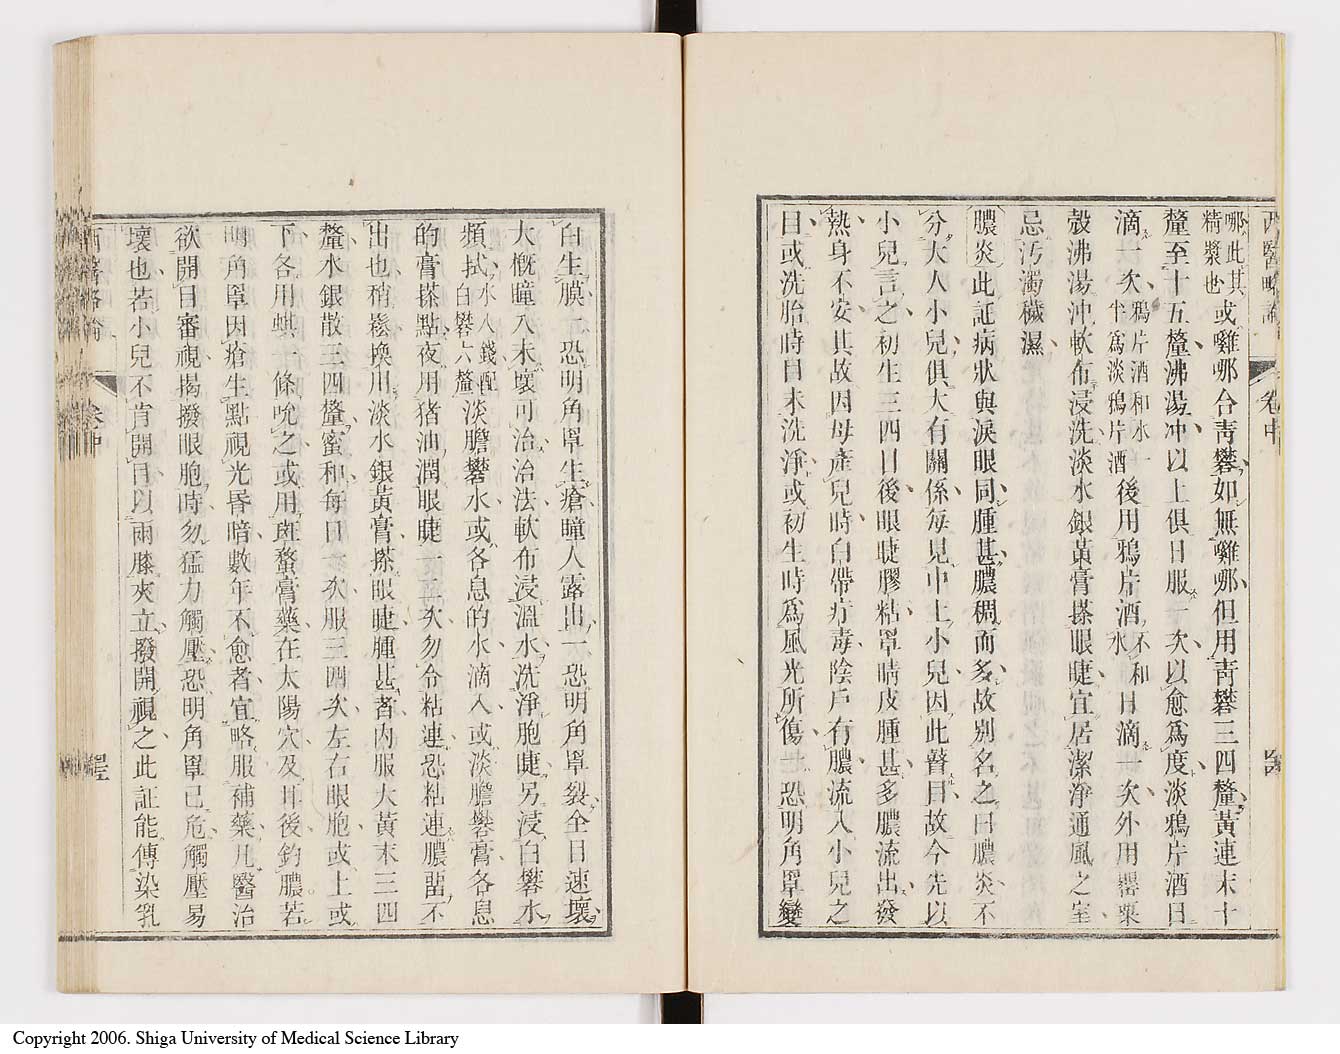 西醫略論
卷中
哪此其精漿也或囄哪台靑礬如無囄哪但用靑礬三四釐黃連末十
釐至十五釐沸湯冲以上俱日服一次以愈爲度淡鴉片酒日
滴一次鴉片酒和水一半爲淡鴉片酒後用鴉片酒不和水日滴一次外用罌粟
殼沸湯沖軟布浸洗淡水銀黃膏搽眼睫宜居潔淨通風之室
忌汚濁穢濕
膿炎此証病狀與淚眼同腫甚膿稠而多故别名之曰膿炎不
分大人小兒俱大有關係每見中土小兒因此瞽目故今先以
小兒言之初生三四日後眼睫膠粘罩睛皮腫甚多膿流出發
熱身不安其故因母產兒時白帶疔毒陰戶有膿流入小兒之
目或洗胎時目未洗淨或初生時爲風光所傷一恐明角罩變
白生膜一恐明角罩生瘡瞳人露出一恐明角罩裂全目速壞
大慨瞳人未壞可治治法軟布浸溫水洗淨胞睫另浸白礬水
頻拭水八錢配白礬六釐淡膽礬水或各息的水滴入或淡膽礬膏各息
的膏搽點夜用猪油潤眼睫一二次勿令粘連恐粘連膿留不
出也稍鬆換用淡水銀黃膏搽眼睫腫甚者内服大黃末三四
釐水銀散三四釐蜜和每日多次服三四次左右眼胞或上或
下各用蜞一條吮之或用斑蝥膏藥在太陽穴及耳後釣膿若
明角罩因瘡生點視光昏暗數年不愈者宜略服補藥凡醫治
欲開目審視揭撥眼胞時勿猛力觸壓恐明角罩已危觸壓易
壞也若小兒不肯開目以兩膝夾立撥開視之此証能傳染乳
西醫略論
卷中